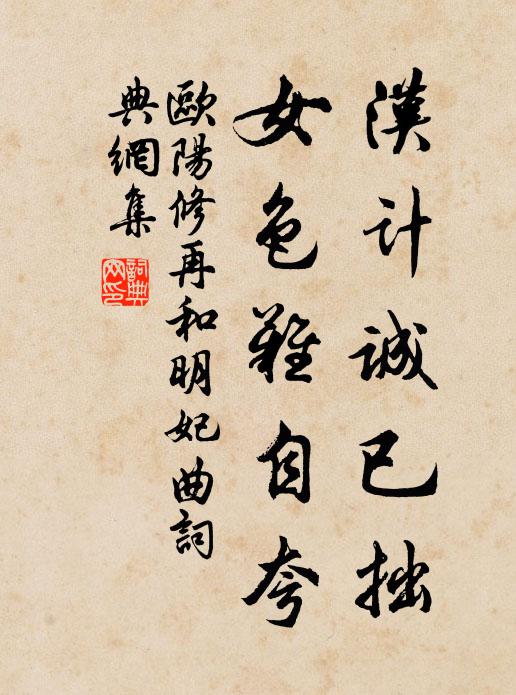 漢計誠已拙
女色難自夸
歐陽修再和明妃曲詞
典網集
詞典
网印